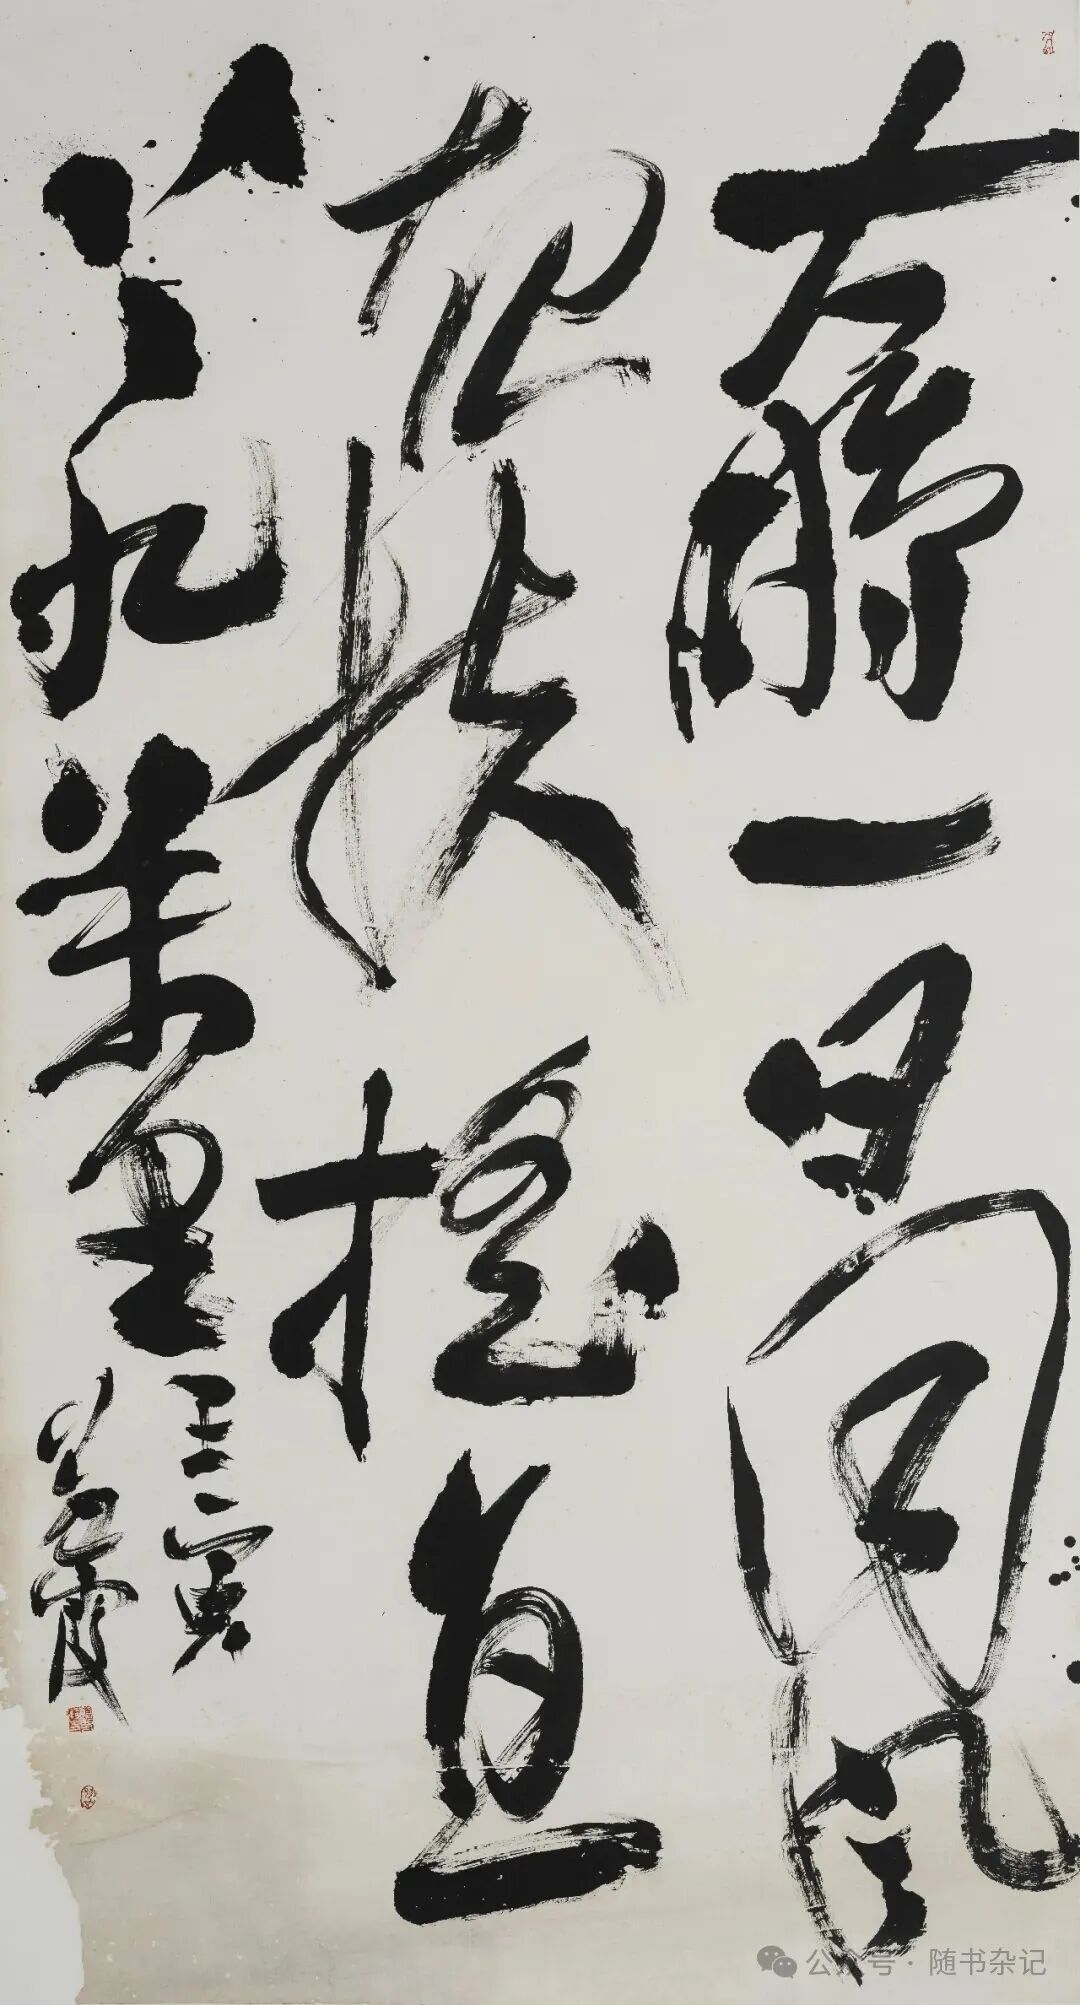 大鵬一日同風
起扶搖直
上九萬里
壬寅
公众号 · 随书杂记